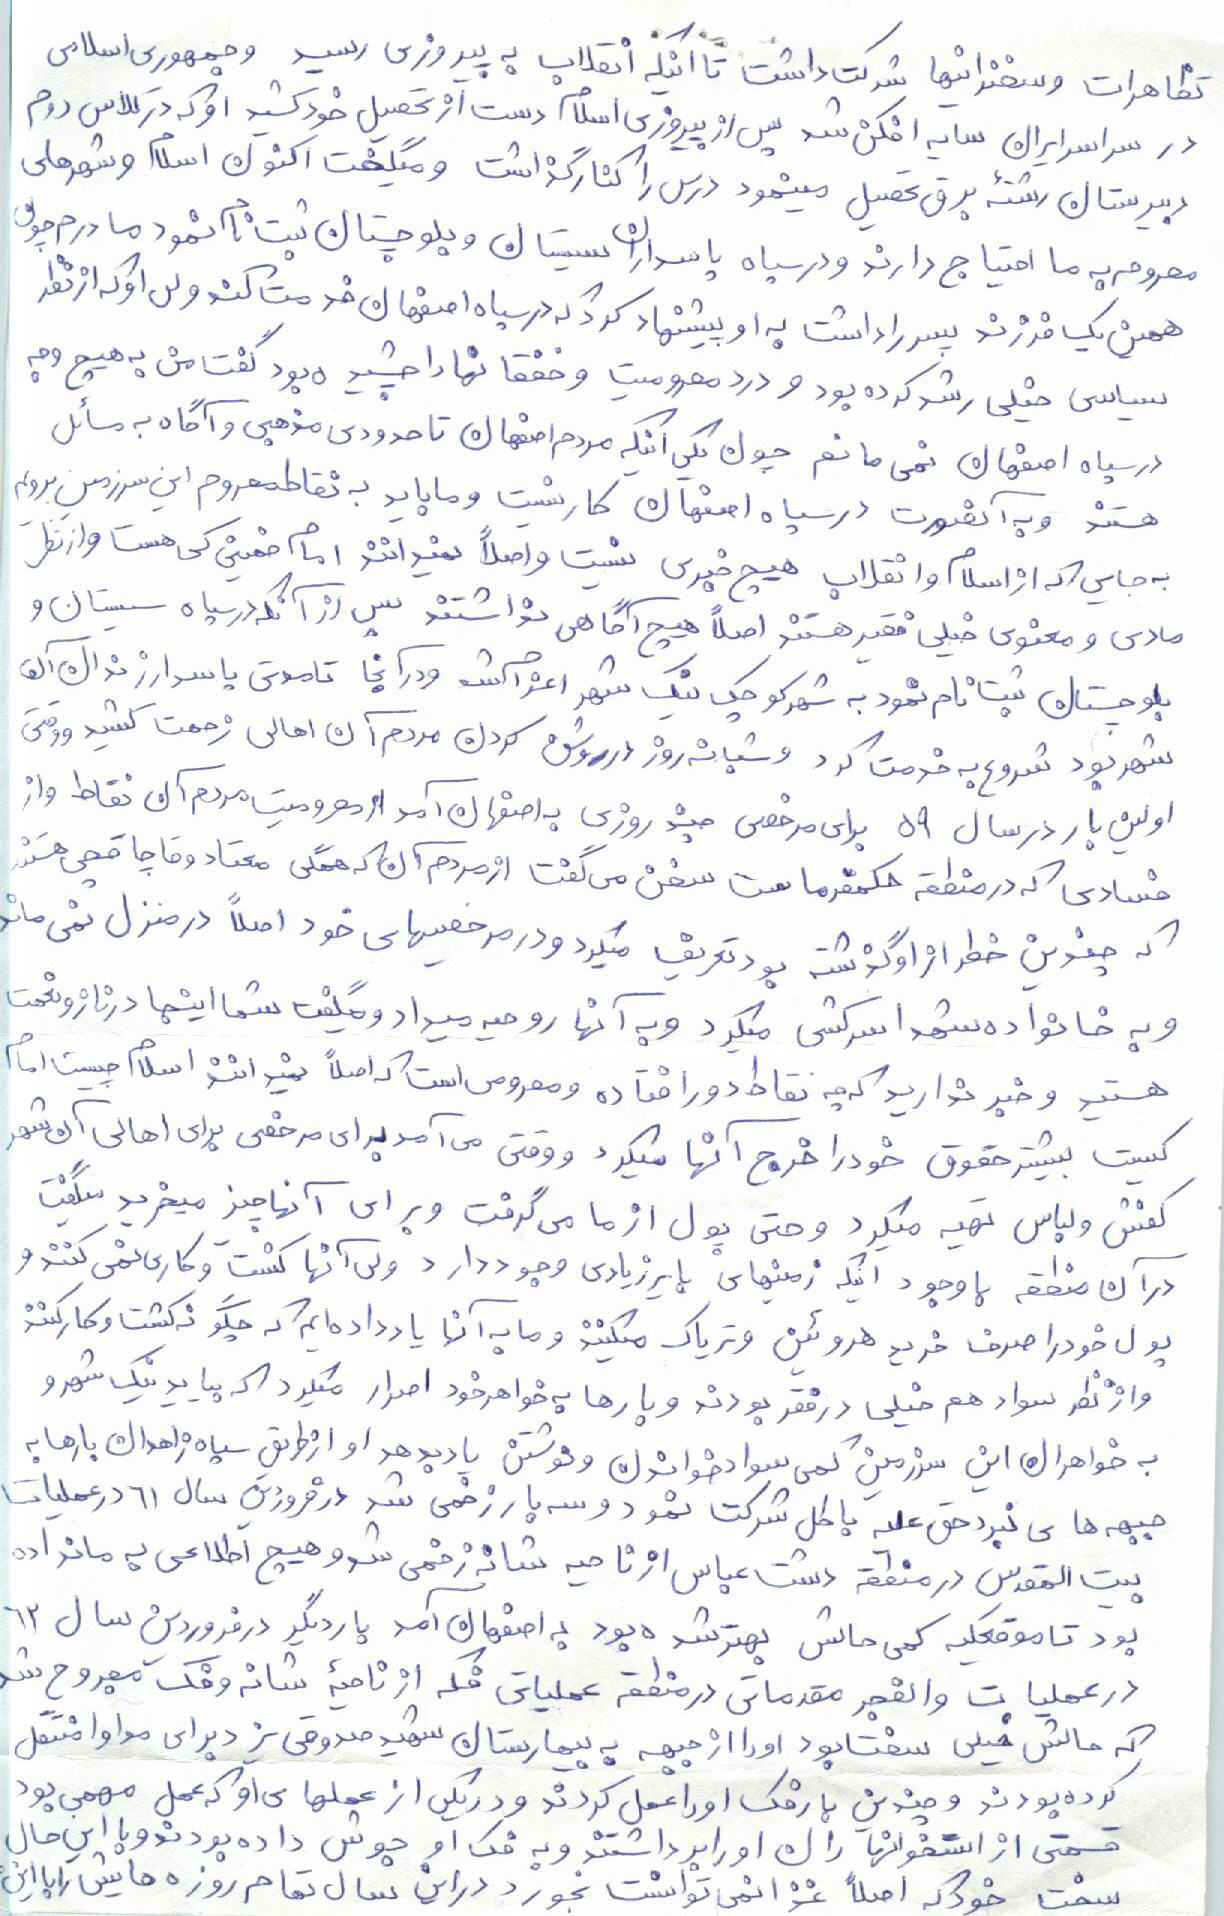 تظاهرات و سخنرانیها شرکت داشت تا اینکه انقلاب به پیروزی رسید و جمهوری اسلامی
در سراسر ایران سایه افکن شد پس از پیروزی اسلام دست از تحصیل خود کشید او که در کلاس دوم
دبیرستان رشتهٔ برق تحصیل مینمود درس را کنار گذاشت و میگفت اکنون اسلام و شهرهای
محروم به ما احتیاج دارند و در سپاه پاسداران سیستان و بلوچستان ثبت نام نمود مادرم چون
همین یک فرزند پسر را داشت به او پیشنهاد کرد که در سپاه اصفهان خدمت کند ولی او که از نظر
سیاسی خیلی رشد کرده بود و درد محرومیت و خفقانها را چشیده بود گفت من به هیچ وجه
در سپاه اصفهان نمی مانم چون یکی اینکه مردم اصفهان تا حدودی مذهبی و آگاه به مسائل
هستند و به آنصورت در سپاه اصفهان کار نیست و ما باید به نقاط محروم این سرزمین برویم
به جایی که از اسلام و انقلاب هیچ خبری نیست و اصلاً نمیدانند امام خمینی کی هست و از نظر
مادی و معنوی خیلی فقیر هستند اصلاً هیچ آگاهی نداشتند پس از آنکه در سپاه سیستان و
بلوچستان ثبت نام نمود به شهر کوچک نیک شهر اعزام شد و در آنجا تا مدتی پاسدار زندان آن
شهر بود شروع به خدمت کرد و شبانه روز در روشن کردن مردم آن اهالی زحمت کشید و وقتی
اولین بار در سال ۵۹ برای مرخصی چند روزی به اصفهان آمد از محرومیت مردم آن نقاط و از
فسادی که در منطقه حکمفرماست سخن می گفت از مردم آن که همگی معتاد و قاچاقچی هستند
که چندین خطر از او گذشته بود تعریف میکرد و در مرخصیهای خود اصلاً در منزل نمی ماند
و به خانواده شهدا سرکشی میکرد و به آنها روحیه میداد و میگفت شما اینجا در ناز و نعمت
هستید و خبر ندارید که چه نقاط دور افتاده و محرومی است که اصلاً نمیدانند اسلام چیست امام
کیست بیشتر حقوق خود را خرج آنها میکرد و وقتی می آمد برای مرخصی برای اهالی آن شهر
کفش و لباس تهیه میکرد و حتی پول از ما می گرفت و برای آنها چیز میخرید میگفت
در آن منطقه با وجود اینکه زمینهای بایر زیادی وجود دارد ولی آنها کشت و کاری نمی کنند و
پول خود را صرف خرید هروئین و تریاک میکنند و ما به آنها یاد داده ایم که چگونه کشت و کار کنند
و از نظر سواد هم خیلی در فقر بودند و بارها به خواهر خود اصرار میکرد که بیاید نیک شهر و
به خواهران این سرزمین کمی سواد خواندن و نوشتن یاد بدهد او از طریق سپاه زاهدان بارها به
جبهه های نبرد حق علیه باطل شرکت نمود و سه بار زخمی شد در فروردین سال ۶۱ در عملیات
بیت المقدس در منطقه دشت عباس از ناحیه شانه زخمی شد و هیچ اطلاعی به ما نداده
بود تا موقعیکه کمی حالش بهتر شده بود به اصفهان آمد بار دیگر در فروردین سال ۶۲
در عملیات والفجر مقدماتی در منطقه عملیاتی فکه از ناحیهٔ شانه و فک مجروح شد
که حالش خیلی سخت بود او را از جبهه به بیمارستان شهید صدوقی یزد برای مداوا منتقل
کرده بودند و چندین بار فک او را عمل کردند و در یکی از عملهای او که عمل مهمی بود
قسمتی از استخوانها ران او را برداشتند و به فک او جوش داده بودند و با این حال
سخت خود که اصلاً غذا نمی توانست بخورد در این سال تمام روزه هایش را با این